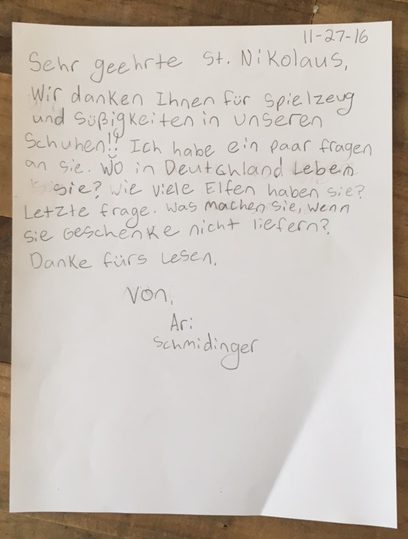 11-27-16
Sehr geehrte St. Nikolaus,
Wir danken Ihnen für Spielzeug
und Süßigkeiten in unseren
Schuhen!! Ich habe ein paar fragen
an sie. Wo in Deutschland Leben
sie? Wie viele Elfen haben sie?
Letzte frage. Was machen sie, wenn
sie Geschenke nicht liefern?
Danke fürs Lesen.
Von,
Ari
Schmidinger